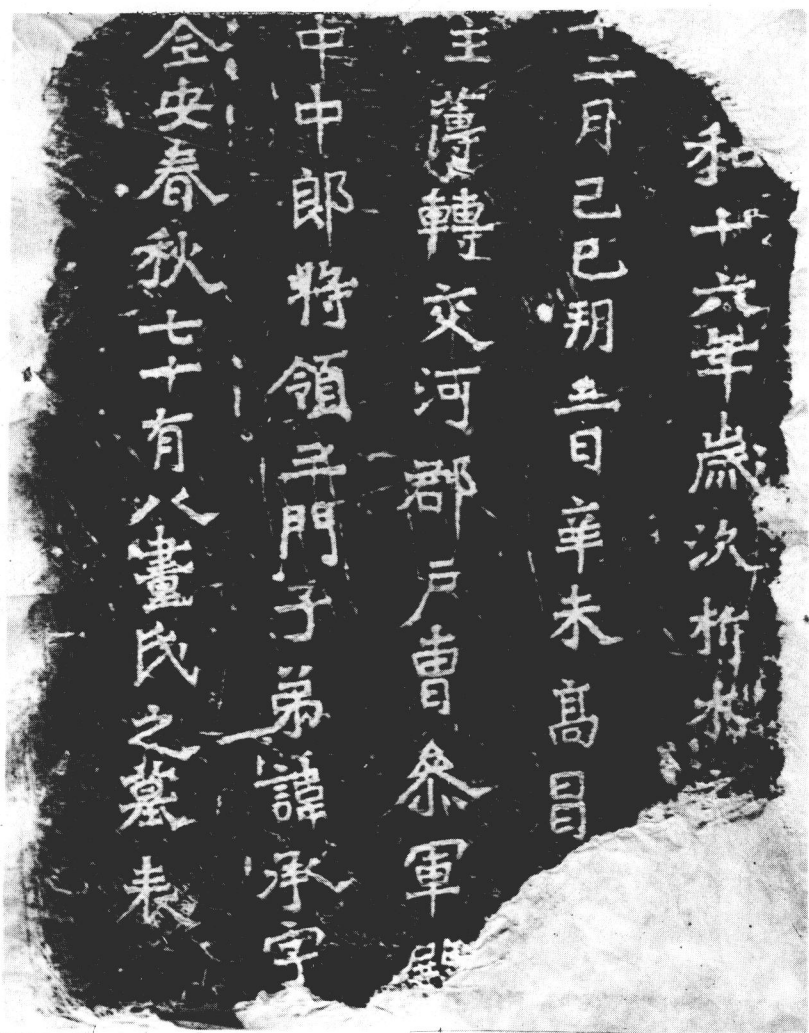 和十六年歲次析木
十二月己巳朔三日辛未高昌
主薄轉交河郡戶曹參軍殿
中中郎將領三門子弟諱承字
全安春秋七十有八畫氏之墓表